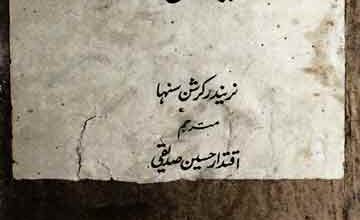 نریندر کرشن سنہا
مترجم
اقتدار حسین صدیقی